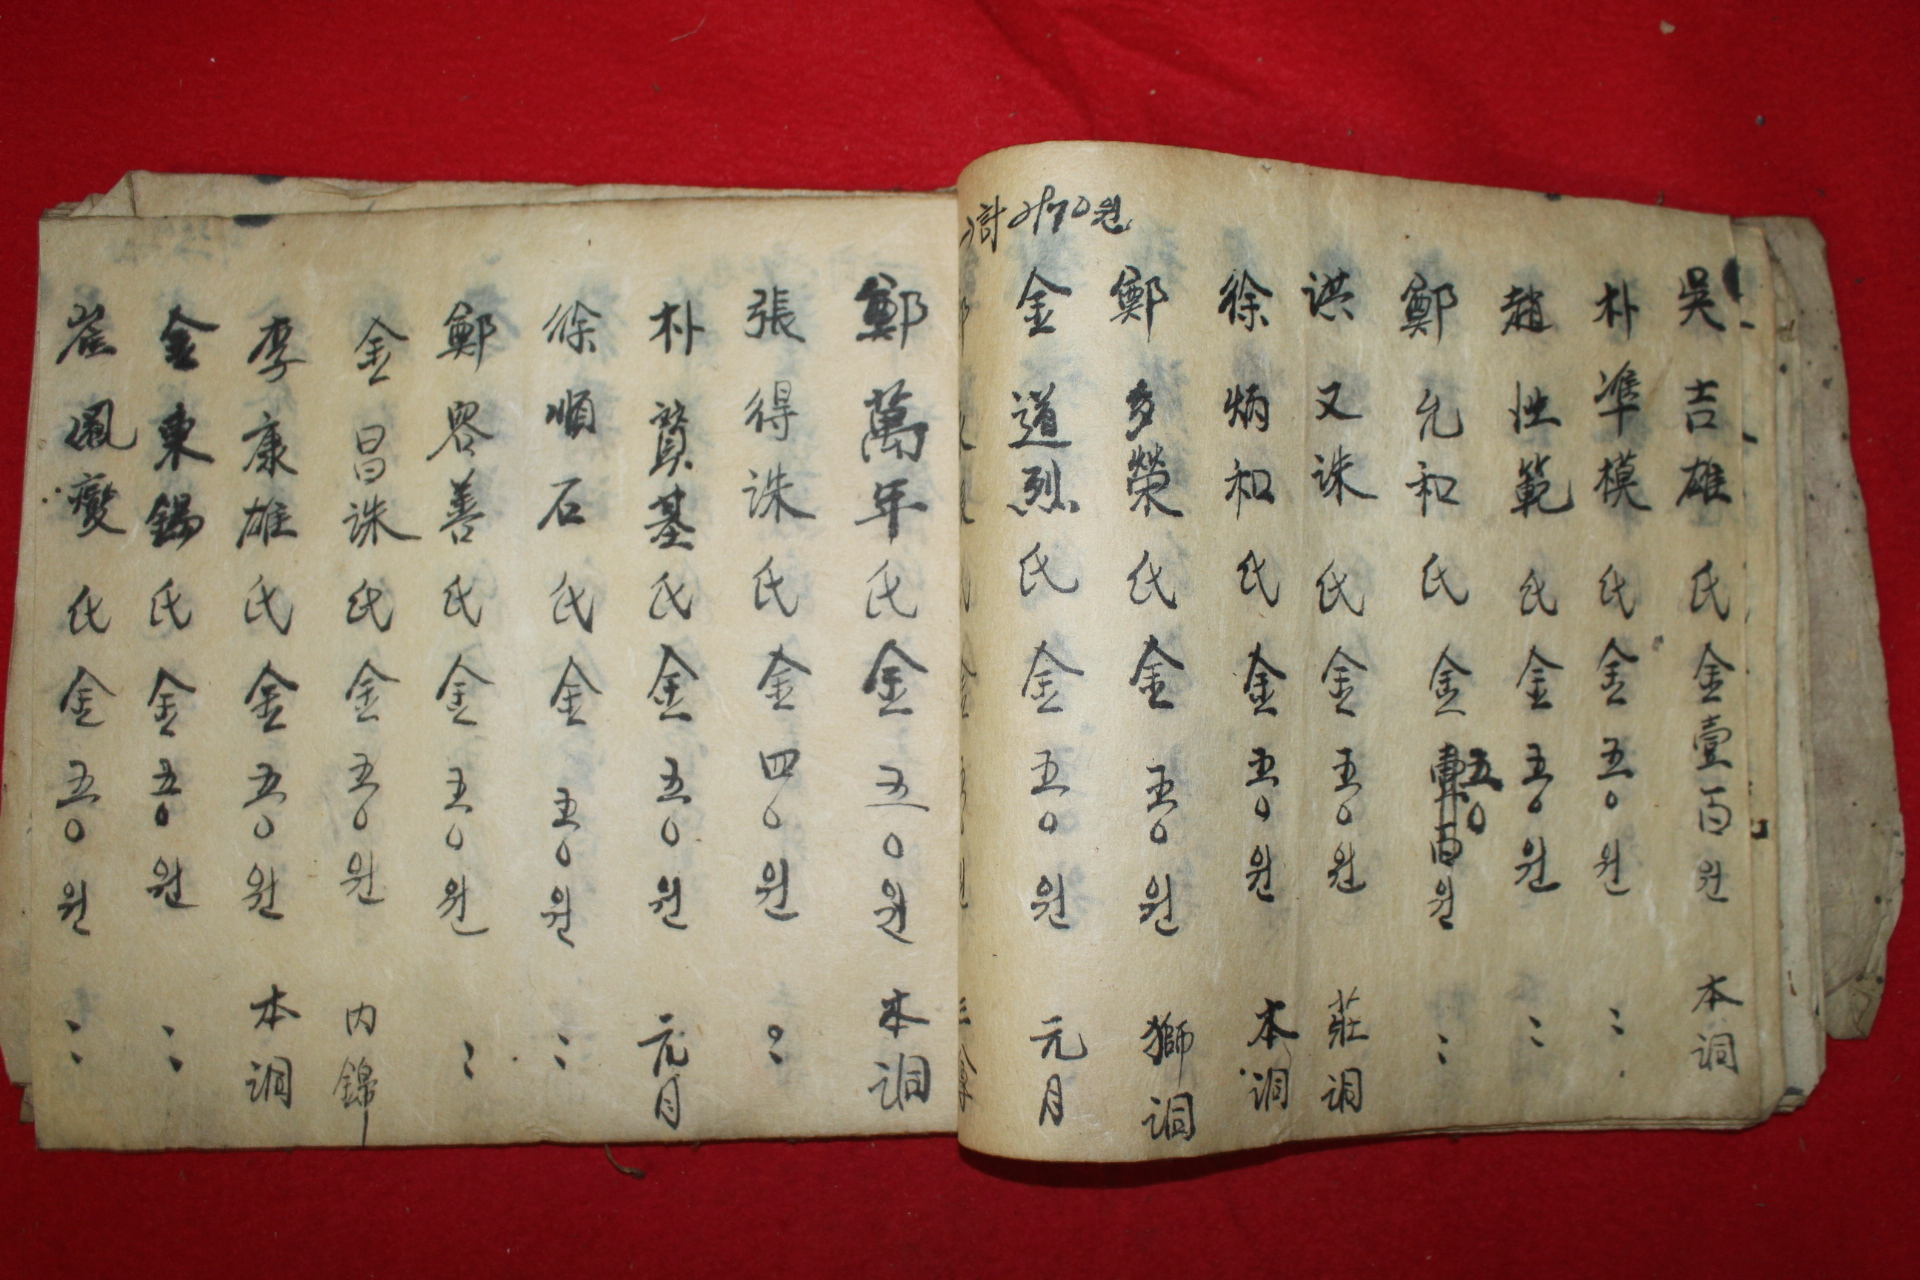 吳吉雄氏金壹百원 本洞
朴準模氏金五〇원 〃
趙性範氏金五〇원 〃
鄭允和氏金五〇원 〃
洪又洙氏金五〇원 莊洞
徐炳和氏金五〇원 本洞
鄭多榮氏金五〇원 獅洞
金道烈氏金五〇원 元月
計 원
鄭萬年氏金五〇원 本洞
張得洙氏金四〇원 〃
朴贊基氏金五〇원 元月
徐順石氏金五〇원 〃
鄭容善氏金五〇원 〃
金昌洙氏金五〇원 内錦
李康雄氏金五〇원 本洞
金東錫氏金五〇원 〃
崔鳳燮氏金五〇원 〃